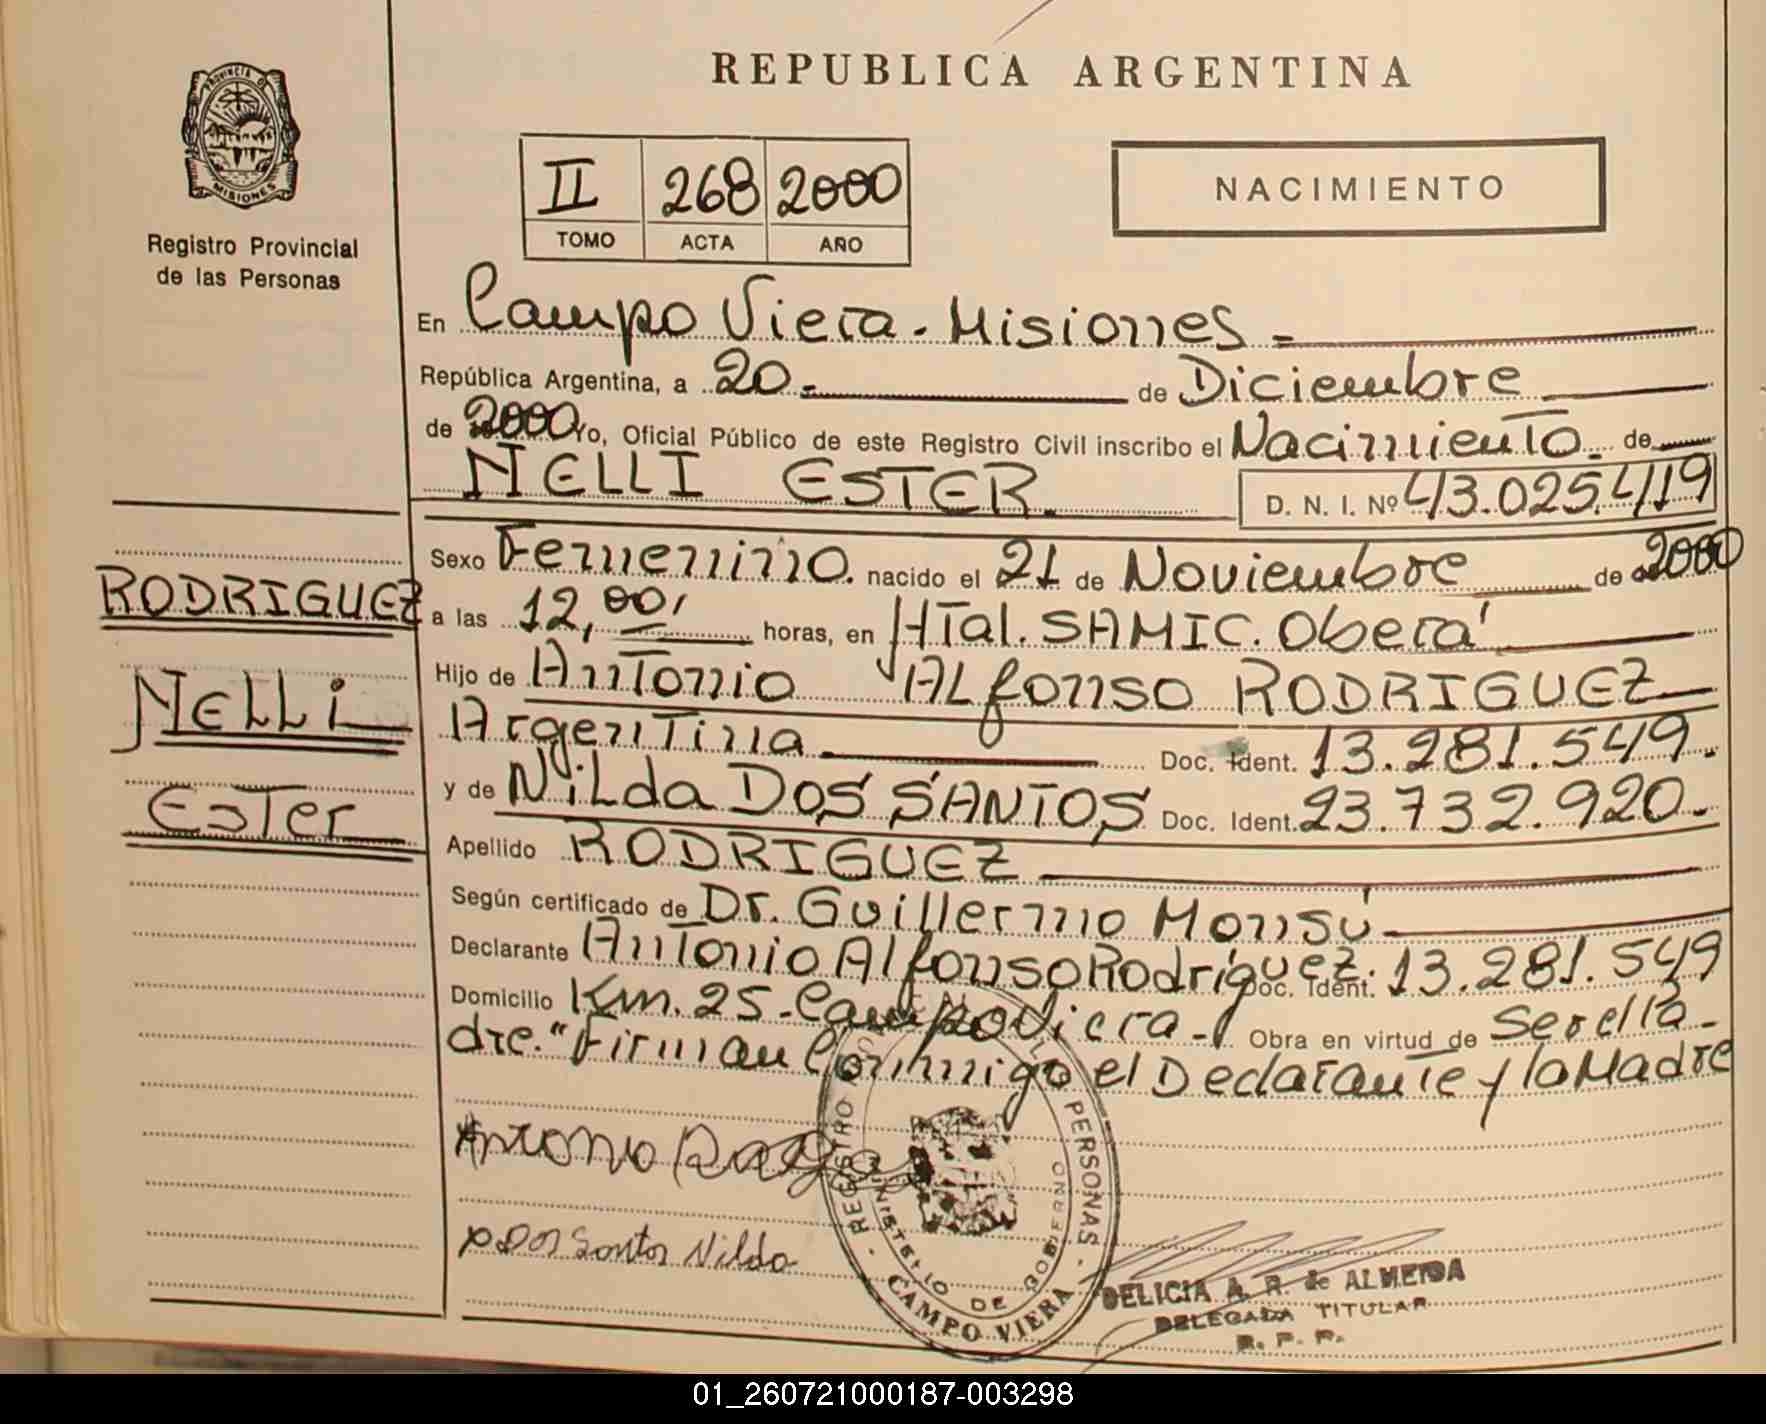 REPUBLICA ARGENTINA
PROVINCIA DE
MISIONES
Registro Provincial
de las Personas
II 268 2000
TOMO ACTA AÑO
NACIMIENTO
En Campo Viera - Misiones =
República Argentina, a 20 - de Diciembre
de 2000 Yo, Oficial Público de este Registro Civil inscribo el Nacimiento. de
NELLI ESTER. D. N. I. Nº 43.025.419
Sexo Femenino. nacido el 21 de Noviembre de 2000
a las 12,00, horas, en HTal. SAMIC. Oberá
Hijo de Antonio ALfonso RODRIGUEZ
Argentina Doc. Ident. 13.281.549.
y de NiLda DOS SANTOS Doc. Ident. 23.732.920.
Apellido RODRIGUEZ
Según certificado de Dr. Guillermo Monsú
Declarante Antonio Alfonso Rodríguez. Doc. Ident. 13.281.549
Domicilio Km. 25 - Campo Viera - Obra en virtud de Ser el Pa-
dre. "Firman Conmigo el Declarante y la Madre
RODRIGUEZ
NeLLi
EsTer
Antonio
Dos Santos Nilda
REGISTRO PERSONAS
MINISTERIO DE GOBIERNO
CAMPO VIERA
DELICIA A. R. de ALMEIDA
DELEGADA TITULAR
R. P. P.
01_260721000187-003298